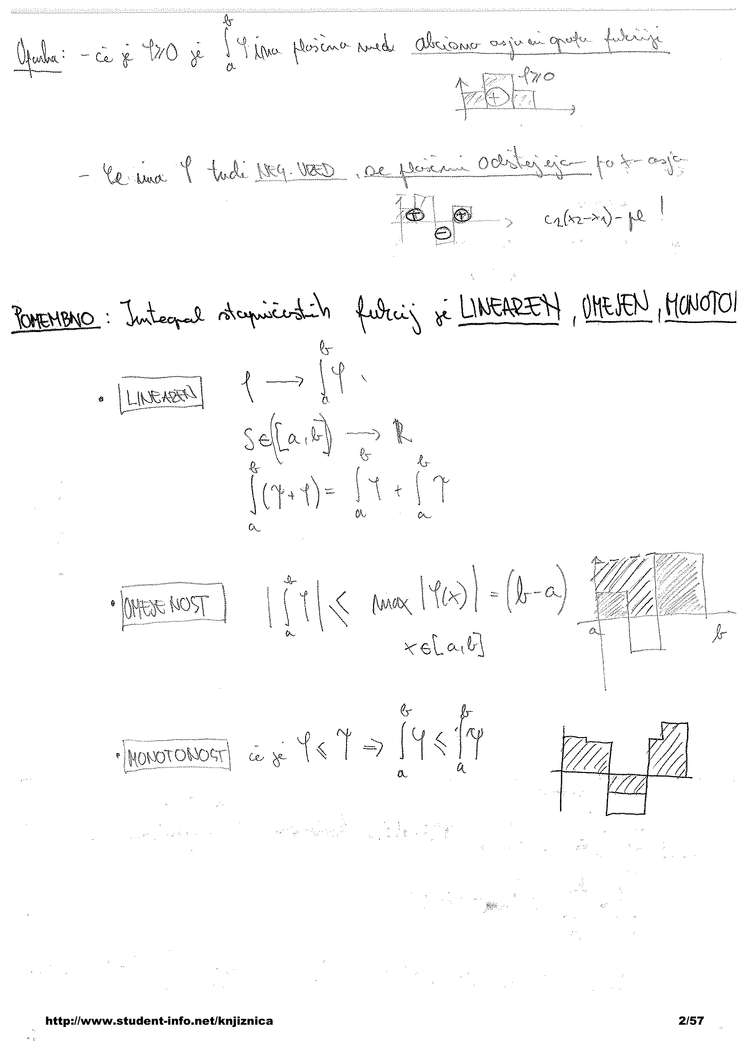 Opomba: - če je φ≥0 je ∫_a^b φ ima ploščina med abcisno osjo in grafa funkciji
φ≥0
+
- Če ima φ tudi NEG. VRED, se ploščini odštejeja po x-osja
+ - + c₁(x₂-x₁) - pl !
POMEMBNO: Integral stopničastih funkcij je LINEAREN, OMEJEN, MONOTO
• LINEAREN φ → ∫_a^b φ
S∈([a,b]) → ℝ
∫_a^b (ψ+φ) = ∫_a^b φ + ∫_a^b ψ
• OMEJENOST |∫_a^b φ| ≤ max |φ(x)| = (b-a)
x∈[a,b]
a b
• MONOTONOST če je φ ≤ ψ ⇒ ∫_a^b φ ≤ ∫_a^b ψ
http://www.student-info.net/knjiznica 2/57